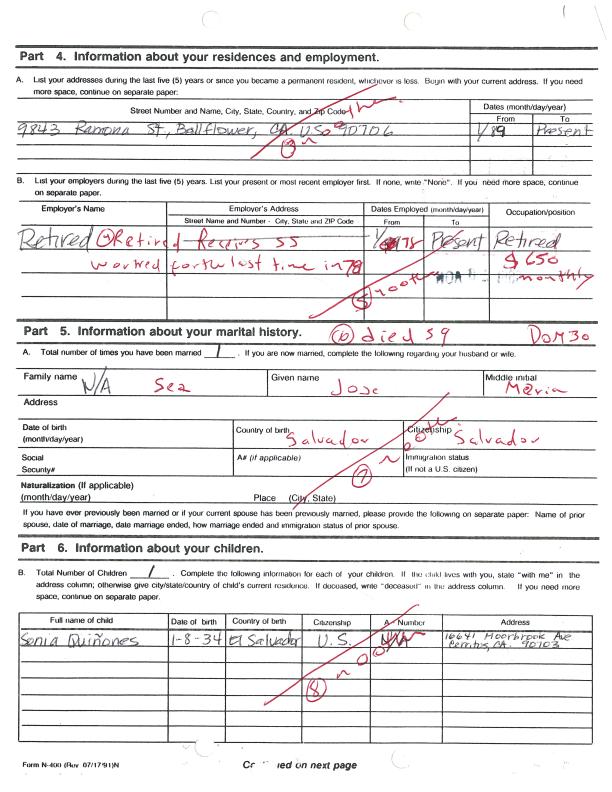 Part 4. Information about your residences and employment.
A. List your addresses during the last five (5) years or since you became a permanent resident, whichever is less. Begin with your current address. If you need
more space, continue on separate paper:
Street Number and Name, City, State, Country, and Zip Code
Dates (month/day/year)
From To
9843 Ramona St, Bellflower, CA. USA 90706 1/89 Present
B. List your employers during the last five (5) years. List your present or most recent employer first. If none, write "None". If you need more space, continue
on separate paper.
Employer's Name Employer's Address Dates Employed (month/day/year) Occupation/position
Street Name and Number - City, State and ZIP Code From To
Retired Retired Receives SS 78 Present Retired
worked for the last time in 78 $650
monthly
Part 5. Information about your marital history. died 59 DOM30
A. Total number of times you have been married 1 . If you are now married, complete the following regarding your husband or wife.
Family name N/A Sea Given name Jose Middle initial Maria
Address
Date of birth
(month/day/year) Country of birth Salvador Citizenship Salvador
Social
Security# A# (if applicable) Immigration status
(If not a U.S. citizen)
Naturalization (If applicable)
(month/day/year) Place (City, State)
If you have ever previously been married or if your current spouse has been previously married, please provide the following on separate paper: Name of prior
spouse, date of marriage, date marriage ended, how marriage ended and immigration status of prior spouse.
Part 6. Information about your children.
B. Total Number of Children 1 . Complete the following information for each of your children. If the child lives with you, state "with me" in the
address column; otherwise give city/state/country of child's current residence. If deceased, write "deceased" in the address column. If you need more
space, continue on separate paper.
Full name of child Date of birth Country of birth Citizenship A- Number Address
Sonia Quiñones 1-8-34 El Salvador U.S. N/A 16641 Moorbrook Ave
Cerritos, CA. 90103
8
Form N-400 (Rev. 07/17/91)N on next page